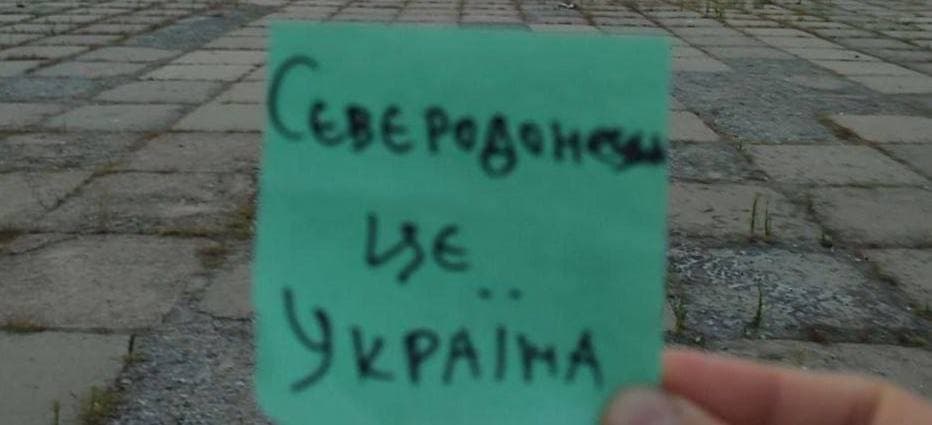 Сєвєродонецьк
це
Україна